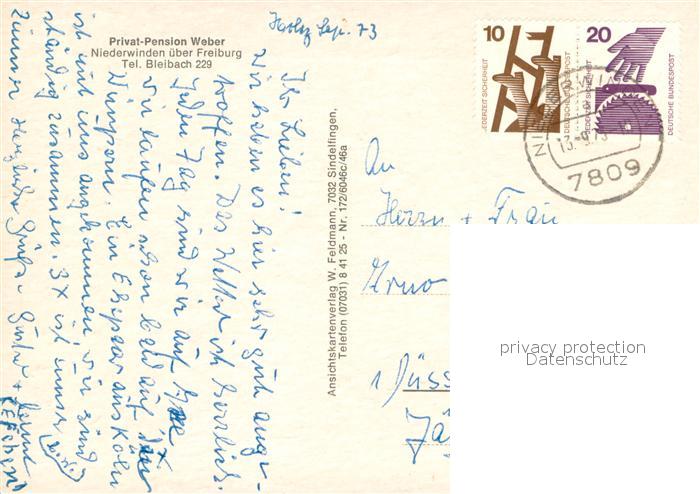 Privat-Pension Weber
Niederwinden über Freiburg
Tel. Bleibach 229
Sep. 73
Ihr Lieben!
Wir haben es hier sehr gut ange-
troffen. Das Wetter ist herrlich.
Jeden Tag sind wir auf
wir laufen schon bald auf
Wimpern. Ein Ehepaar aus Köln
ist mit uns angekommen, wir sind
ständig zusammen. 3 x ist unser
Zimmer Herzliche Grüße
Ansichtskartenverlag W. Feldmann, 7032 Sindelfingen,
Telefon (07031) 8 41 25 - Nr. 172/6046c/46a
10
JEDERZEIT SICHERHEIT
DEUTSCHE BUNDESPOST
20
JEDERZEIT SICHERHEIT
DEUTSCHE BUNDESPOST
7809
An
Herrn + Frau
Erno
1 Düss
privacy protection
Datenschutz